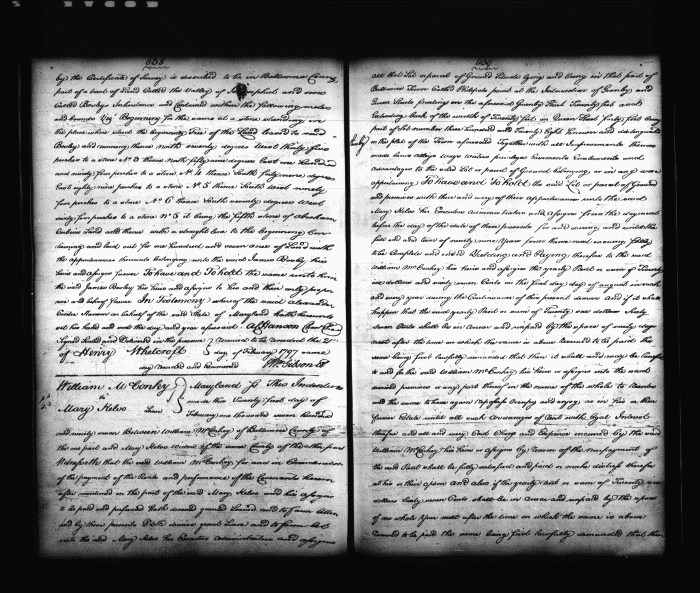 638
by the Certificate of Survey is described to be in Baltimore County
part of a tract of Land Called the Valley of and now
Called Bosleys Inheritance and Contained within the following metes
and bounds Viz. Beginning for the same at a stone standing in
the place where stood the beginning Tree of the Land
Bosley and running thence north seventy degrees West thirty five
perches to a stone No. 3 thence north fifty nine degrees East one hundred
and ninety five perches to a stone No. 4 thence South forty more degrees
East eighty nine perches to a stone No. 5 thence South West ninety
perches to a stone No. 6 thence South seventy degrees West
sixty five perches to a stone No. 5 it being the fifth stone of Abraham
Land and thence with a straight line to the beginning Con-
taining and laid out for one hundred and seven acres of Land with
the appurtenances thereunto belonging unto the said James Bosley his
heirs and assigns forever To have and To hold the same unto him
the said James Bosley his heirs and assigns to his and their only proper
use and behoof forever In Testimony whereof the said Alexander
Contee Hanson on behalf of the said State of Maryland hath hereunto
set his hand and seal the day and year aforesaid A C Hanson Chan
Signed Sealed and Delivered in the presence of Received to be recorded the 21st
of Henry Whetcroft day of February 1797 same
day recorded and Examined
Wm Gibson
William McConky Maryland Ss This Indenture
to made this Twenty first day of
Mary Kelso Lease February one thousand seven hundred
and ninety seven Between William McConky of Baltimore County of
the one part and Mary Kelso widow of the same County of the other part
Witnesseth that the said William McConky for and in Consideration
of the payment of the Rents and performance of the Covenants herein
after mentioned on the part of the said Mary Kelso and her assigns
to be paid and performed hath demised granted Leased and to farm letten
and by these presents Doth demise grant Lease and to farm let
unto the said Mary Kelso her Executors administrators and assigns
639
all that Lot or parcel of Ground Situate lying and being in that part of
Baltimore Town Called Philpots point at the Intersection of Granby and
Queen Streets fronting on the aforesaid Granby Street Twenty feet and
Extending back of the width of Twenty feet on Queen Street Sixty feet being
part of Lot number three hundred and Twenty Eight known and distinguished
on the plat of the Town aforesaid Together with all Improvements thereon
made lanes alleys ways waters privileges hereditaments and
advantages to the said Lot or parcel of Ground belonging or in any wise
appertaining To have and To hold the said Lot or parcel of Ground
and premises with their and every of their appurtenances unto the said
Mary Kelso her Executors administrators and assigns from the day next
before the day of the date of these presents for and during and until the
full end and term of ninety nine years from thence next ensuing fully
to be Complete and ended Yielding and Paying therefor to the said
William McConky his heirs and assigns the yearly Rent or sum of Twenty
one dollars and sixty seven Cents on the first day of August in each
and every year during the Continuance of this present demise and if it shall
happen that the said yearly Rent or sum of Twenty one dollars Sixty
seven Cents shall be in arrear and unpaid by the space of sixty days
next after the time on which the same is above reserved to be paid the
same being first Lawfully demanded that then it shall and may be lawful
to and for the said William McConky his heirs or assigns into the said
demised premises or any part thereof in the name of the whole to reenter
and the same to have again repossess occupy and enjoy as in his or their
former Estate until all such arrearages of Rent with legal Interest
thereon and all and every Cost Charge and Expence incurred by the said
William McConky his heirs or assigns by reason of the nonpayment of
the said Rent shall be fully satisfied and paid or make distress therefor
at his or their option and also if the yearly Rent or sum of Twenty one
dollars Sixty seven Cents shall be in arrear and unpaid by the space
of one whole year next after the time on which the same is above
reserved to be paid the same being first lawfully demanded that then